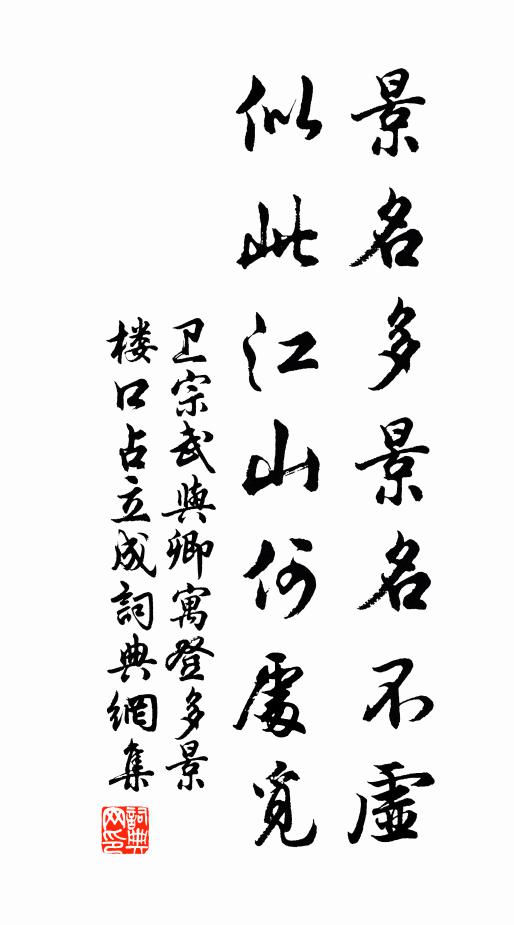 景名多景名不虚
似此江山何處覓
卫宗武與卿寓登多景
楼口占立成詞典網集
詞典
网印